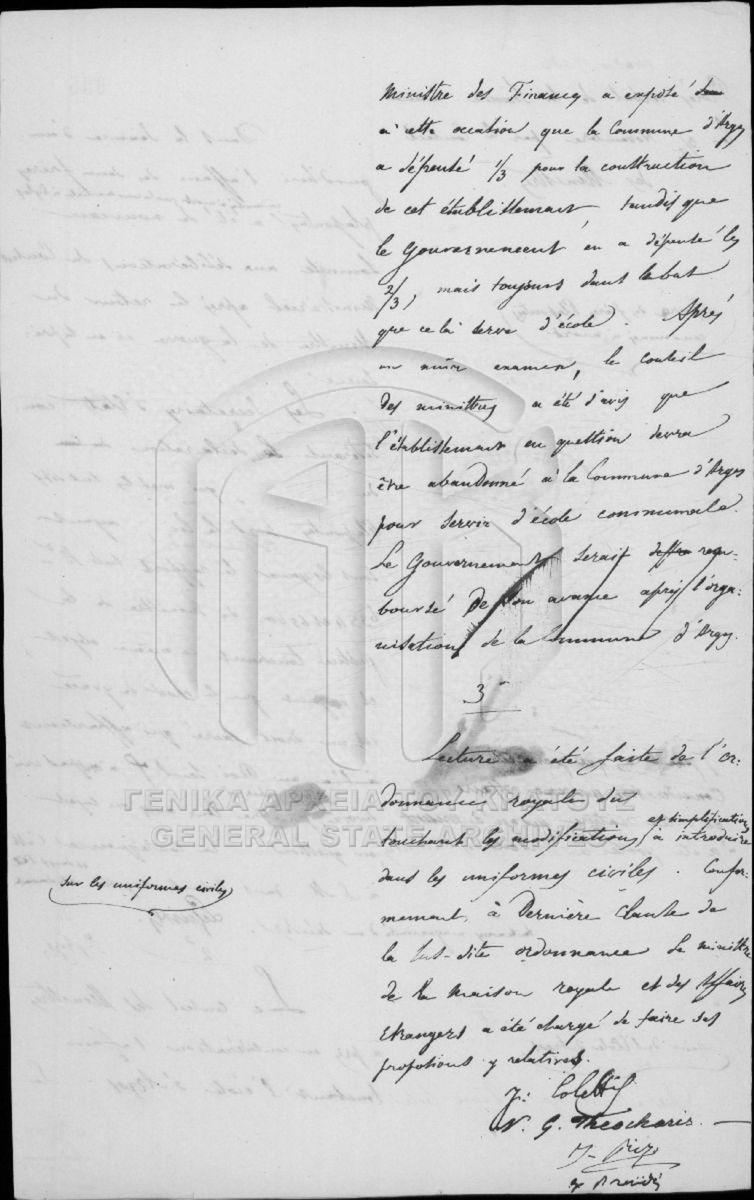 Ministre des Finances a exposé
à cette occasion que la Commune d'Argos
a dépensé 1/3 pour la construction
de cet établissement tandis que
le Gouvernement en a dépensé les
2/3, mais toujours dans le but
que cela serve d'école. Après
un mûr examen, le conseil
des ministres a été d'avis que
l'établissement en question devra
être abandonné à la Commune d'Argos
pour servir d'école communale.
Le Gouvernement serait rem-
boursé de son avance après l'orga-
nisation de la Commune d'Argos.
3°
Lecture a été faite de l'or-
donnance royale du
touchant les modifications et simplifications à introduire
sur les uniformes civiles
dans les uniformes civiles. Confor-
mement à dernière clause de
la sus-dite ordonnance le ministre
de la maison royale et des Affaires
Etrangers a été chargé de faire ses
propositions y relatives.
J. Colettis
N. G. Theocharis.
ΓΕΝΙΚΑ ΑΡΧΕΙΑ ΤΟΥ ΚΡΑΤΟΥΣ
GENERAL STATE ARCHIVES